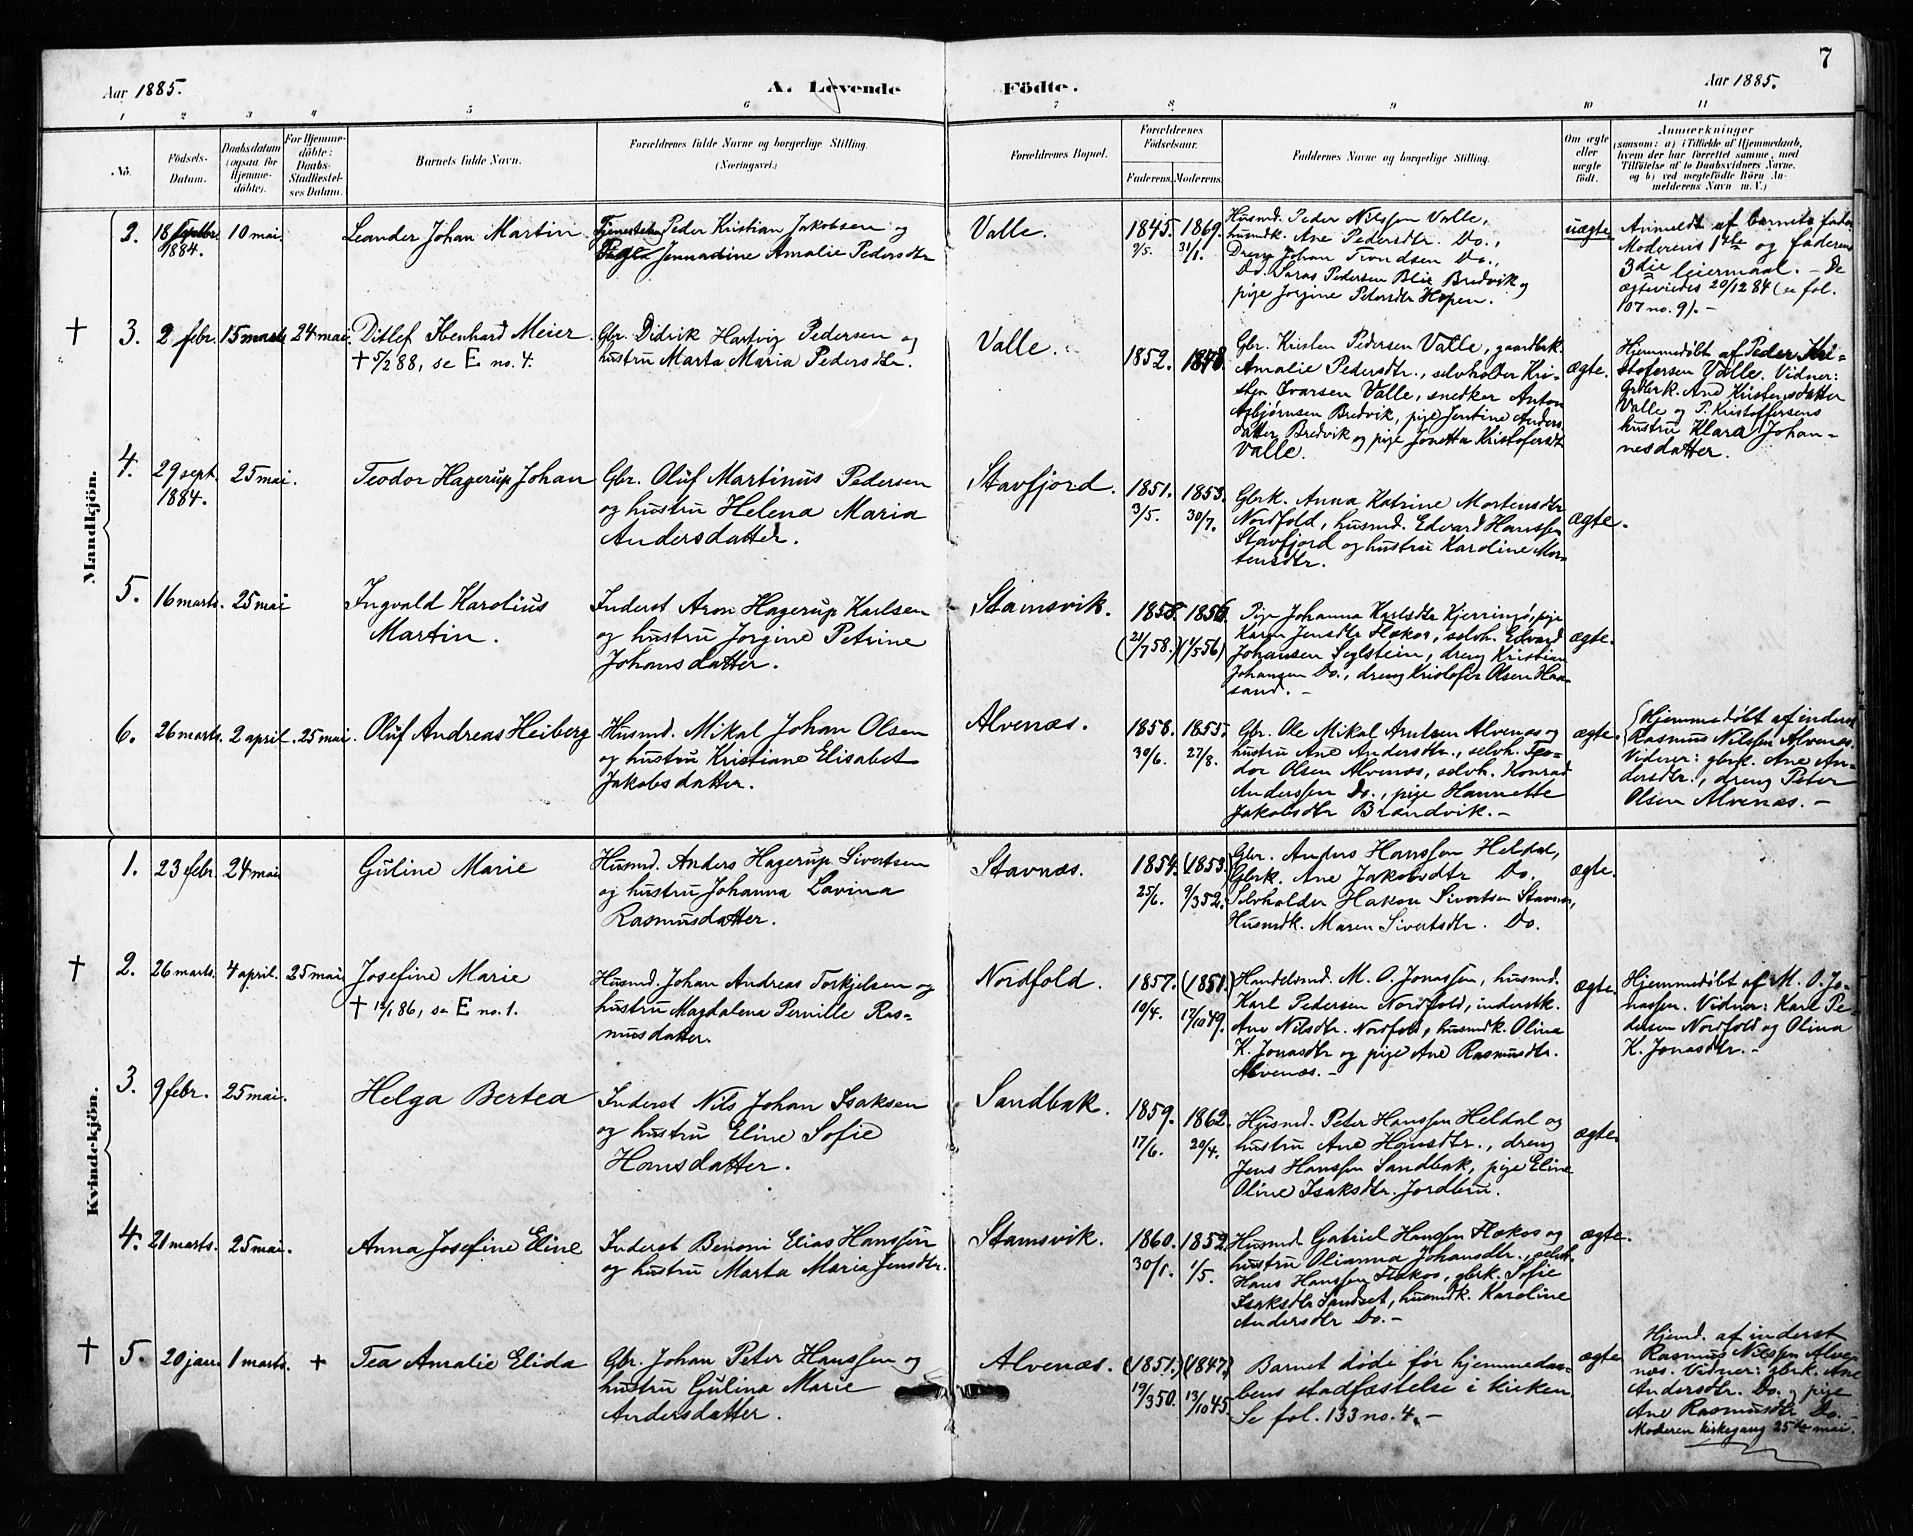 7
Aar 1885. A. Levende Födte. Aar 1885.
1 2 3 4 5 6 7 8 9 10 11
No. Födsels-Datum. Daabsdatum (ogsaa for Hjemmedöbte). For Hjemmedöbte: Daabs-Stadfæstelses Datum. Barnets fulde Navn. Forældrenes fulde Navne og borgerlige Stilling. (Næringsvei.) Forældrenes Bopæl. Forældrenes Födselsaar. Faderens. Moderens. Faddernes Navne og borgerlige Stilling. Om ægte eller uægte födt. Anmærkninger (saasom: a) i Tilfælde af Hjemmedaab, hvem der har forrettet samme, med Tilföielse af to Daabsvidners Navne. og b) ved uægtefödte Börn Anmelderens Navn m. V.)
Mandkjön.
2. 18
1884. 10 mai. Leander Johan Martin Peder Kristian Jakobsen og
Jennadine Amalie Pedersdtr
Valle. 1845. 2/5. 1869. 31/1.
Husmd. Peder Nilssen Valle,
husmdk. Ane Pedersdtr. Do.,
Dreng Johan Trondsen Do.,
Do. Saras Pedersen Blie Bredvik og
pige Jorgine Petersdtr Hopen.
uægte
Anmeldt af barnets fader
Moderens 1ste og faderens
3die leiermaal. - De
ægteviedes 29/12 84 (se fol.
107 no. 9). -
† 3. 2 febr. 15 marts 24 mai. Ditlef Ibenhard Meier
† 5/2 88, se E no. 4.
Gbr. Didrik Hartvig Pedersen og
hustru Marta Maria Pedersdtr.
Valle. 1852. 1848.
Gbr. Kristen Pedersen Valle, gaardbrk.
Amalie Pedersdtr., selvholder Kri-
sten Ivarsen Valle, snedker Anton
Asbjørnsen Bredvik, pige Jentine Anders
datter Bredvik og pige Jonetta Kristofersdtr
Valle.
ægte.
Hjemmedøbt af Peder Kri-
stofersen Valle. Vidner:
Grdbrk. Ane Kristensdatter
Valle og P. Kristoffersens
hustru Klara Johan-
nesdatter.
4. 29 sept.
1884. 25 mai. Teodor Hagerup Johan
Gbr. Oluf Martinus Pedersen
og hustru Helena Maria
Andersdatter.
Stavfjord. 1851. 3/5. 1853. 30/7.
Gbrk. Anna Katrine Mortensdtr
Nordfold, husmd. Edvard Hanssen
Stavfjord og hustru Karoline Mor-
tensdtr.
ægte.
5. 16 marts. 25 mai Ingvald Karolius
Martin.
Inderst Aron Hagerup Karlsen
og hustru Jorgine Petrine
Johansdatter.
Stamsvik. 1858. (21/7 58.) 1856. (4/5 56)
Pige Johanna Karlsdtr Kjerringø, pige
Karen Jensdtr Flekos, selvh. Edvard
Johansen Seglstein, dreng Kristian
Johansen Do., dreng Kristofer Olsen Haa-
sand. -
ægte.
6. 26 marts. 2 april. 25 mai. Oluf Andreas Heiberg
Husmd. Mikal Johan Olsen
og hustru Kristiane Elisabet
Jakobsdatter.
Alvenæs. 1858. 30/6. 1855. 27/8.
Gbr. Ole Mikal Arntsen Alvenæs og
hustru Ane Andersdtr., selvh. Teo-
dor Olsen Alvenæs, selvh. Konrad
Anderssen Do., pige Hannette
Jakobsdtr Brandvik. -
ægte.
Hjemmedøbt af inderst
Rasmus Nilssen Alvenæs.
Vidner: gbrk. Ane An-
dersdtr., dreng Peter
Olsen Alvenæs. -
Kvindekjön.
1. 23 febr. 24 mai Guline Marie
Husmd. Anders Hagerup Sivertsen
og hustru Johanna Lavina
Rasmusdatter.
Stavnæs. 1854. 25/6. (1853. 9/3 52.)
Gbr. Anders Hanssen Heldal,
Gbrk. Ane Jakobsdtr Do.
Selvholder Hakon Sivertsen Stavnæs,
Husmdk. Maren Sivertsdtr. Do.
ægte.
† 2. 26 marts. 4 april. 25 mai Josefine Marie
† 12/1 86, se E no. 1.
Husmd. Johan Andreas Torkjelsen og
hustru Magdalena Pernille Ras-
musdatter.
Nordfold. 1857. 10/4. (1851.) 17/10 49.
Handelsmd. M. O. Jonassen, husmd.
Karl Pedersen Nordfold, inderstk.
Ane Nilsdtr. Nordfold, husmdk. Olina
K. Jonasdtr og pige Ane Rasmusdtr.
Alvenæs. -
ægte.
Hjemmedøbt af M. O. Jo-
nassen. Vidner: Karl Pe-
dersen Nordfold og Olina
K. Jonasdtr. -
3. 9 febr. 25 mai. Helga Bertea
Inderst Nils Johan Isaksen
og hustru Eline Sofie
Hansdatter.
Sandbak. 1859. 17/6. 1862. 20/4.
Husmd. Peter Hanssen Heldal og
hustru Ane Hansdtr., dreng
Jens Hanssen Sandbak, pige Eline
Oline Isaksdtr. Jordbru.
ægte.
4. 21 marts. 25 mai. Anna Josefine Eline
Inderst Benoni Elias Hanssen
og hustru Marta Maria Jensdtr.
Stamsvik. 1860. 30/1. 1852. 1/5.
Husmd. Gabriel Hansen Flekos og
hustru Olianna Johansdtr., selvh.
Hans Hanssen Flekos, gbrk. Sofie
Isaksdtr Sandset, husmdk. Karoline
Andersdtr Do. -
ægte.
† 5. 20 jan. 1 marts. + Tea Amalie Elida
Gbr. Johan Peter Hanssen og
hustru Gulina Marie
Andersdatter.
Alvenæs. (1851.) 19/3 50. (1847.) 13/10 45.
Barnet døde før hjemmedaa-
bens stadfæstelse i kirken.
Se fol. 133 no. 4. -
ægte
Hjemd. af inderst
Rasmus Nilssen Alve-
næs. Vidner: gbrk. Ane
Andersdtr. Do. og pige
Ane Rasmusdtr Do. -
Moderen kirkegang 25de mai.